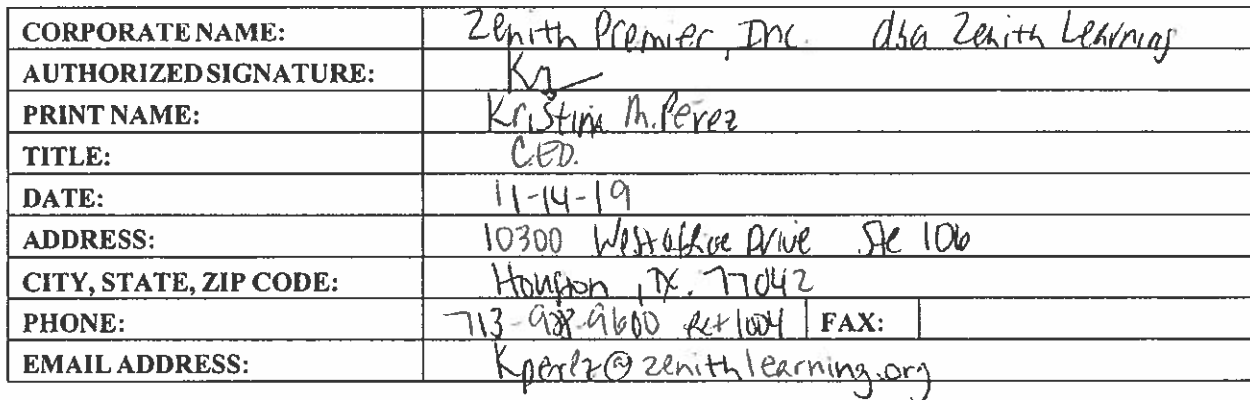 CORPORATE NAME: Zenith Premier, Inc. dba Zenith Learning
AUTHORIZED SIGNATURE:
PRINT NAME: Kristina M. Perez
TITLE: C.E.O.
DATE: 11-14-19
ADDRESS: 10300 Westoffice Drive Ste 106
CITY, STATE, ZIP CODE: Houston, TX. 77042
PHONE: 713- ext 1004 FAX:
EMAIL ADDRESS: Kperez@zenithlearning.org